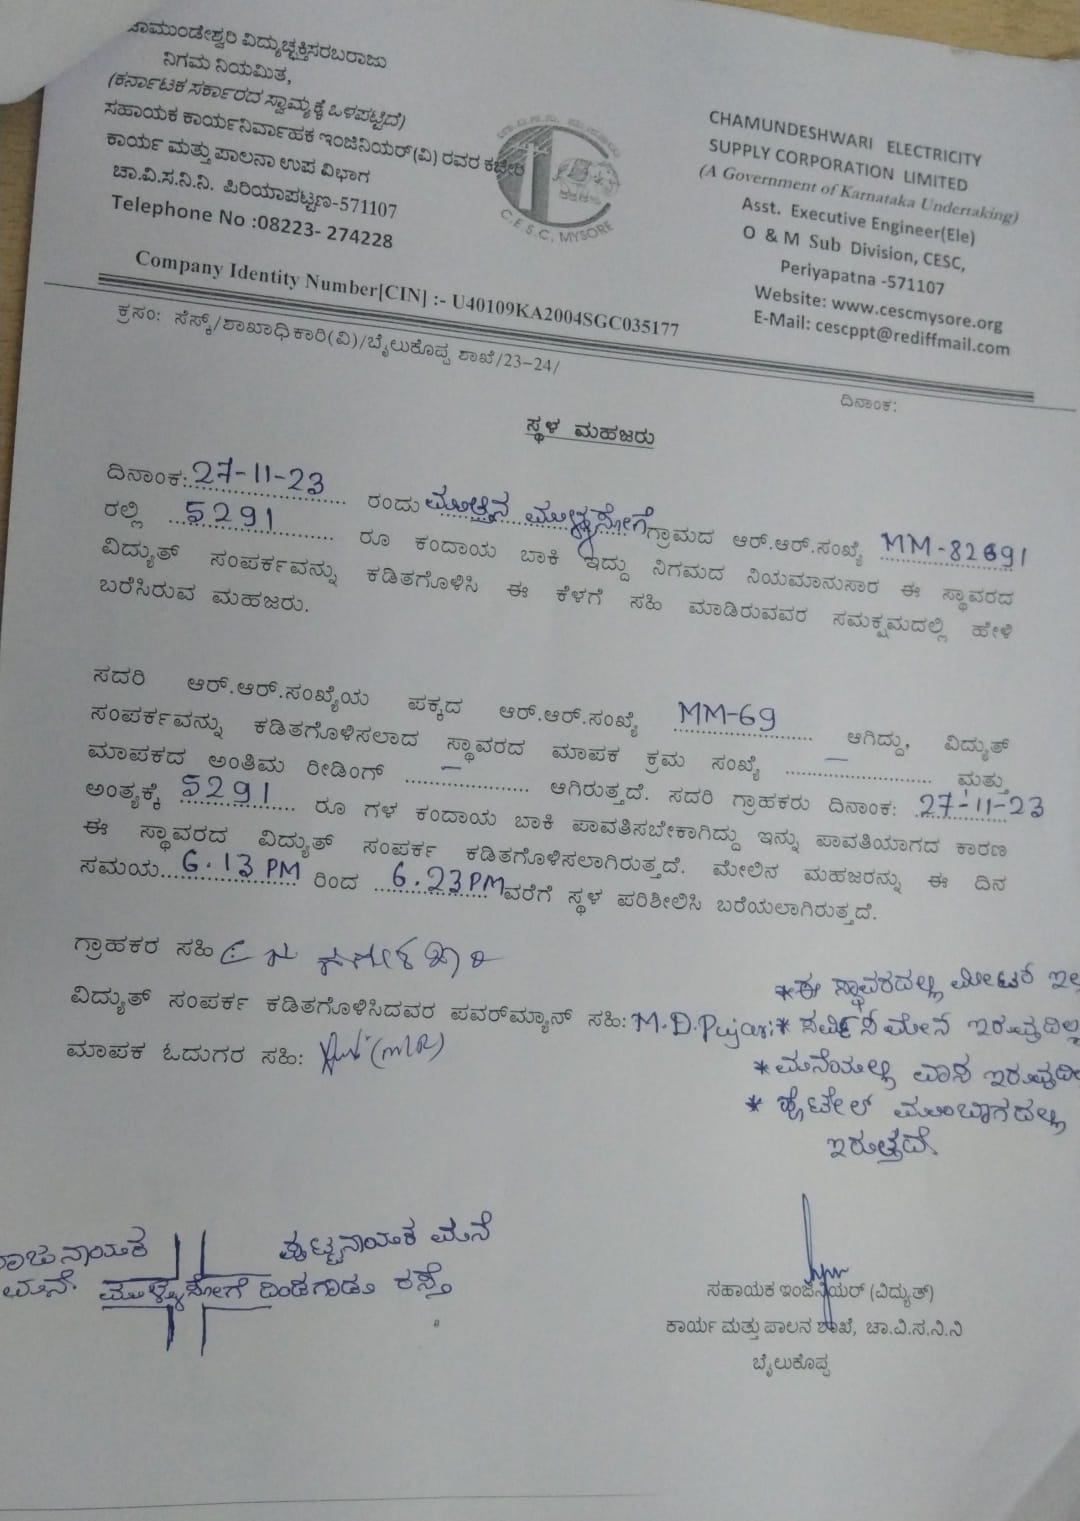 ಚಾಮುಂಡೇಶ್ವರಿ ವಿದ್ಯುಚ್ಛಕ್ತಿಸರಬರಾಜು
ನಿಗಮ ನಿಯಮಿತ,
(ಕರ್ನಾಟಕ ಸರ್ಕಾರದ ಸ್ವಾಮ್ಯಕ್ಕೆ ಒಳಪಟ್ಟಿದೆ)
ಸಹಾಯಕ ಕಾರ್ಯನಿರ್ವಾಹಕ ಇಂಜಿನಿಯರ್(ವಿ) ರವರ ಕಛೇರಿ
ಕಾರ್ಯ ಮತ್ತು ಪಾಲನಾ ಉಪ ವಿಭಾಗ
ಚಾ.ವಿ.ಸ.ನಿ.ನಿ. ಪಿರಿಯಾಪಟ್ಟಣ-571107
Telephone No :08223- 274228
C.E.S.C, MYSORE
CHAMUNDESHWARI ELECTRICITY
SUPPLY CORPORATION LIMITED
(A Government of Karnataka Undertaking)
Asst. Executive Engineer(Ele)
O & M Sub Division, CESC,
Periyapatna -571107
Website: www.cescmysore.org
E-Mail: cescppt@rediffmail.com
Company Identity Number[CIN] :- U40109KA2004SGC035177
ಕ್ರಸಂ: ಸೆಸ್ಕ್/ಶಾಖಾಧಿಕಾರಿ(ವಿ)/ಬೈಲುಕೊಪ್ಪ ಶಾಖೆ/23-24/
ದಿನಾಂಕ:
ಸ್ಥಳ ಮಹಜರು
ದಿನಾಂಕ: 27-11-23 ರಂದು ಮುತ್ತಿನ ಮುಳ್ಳುಸೋಗೆ ಗ್ರಾಮದ ಆರ್.ಆರ್.ಸಂಖ್ಯೆ MM-82691
ರಲ್ಲಿ 5291 ರೂ ಕಂದಾಯ ಬಾಕಿ ಇದ್ದು ನಿಗಮದ ನಿಯಮಾನುಸಾರ ಈ ಸ್ಥಾವರದ
ವಿದ್ಯುತ್ ಸಂಪರ್ಕವನ್ನು ಕಡಿತಗೊಳಿಸಿ ಈ ಕೆಳಗೆ ಸಹಿ ಮಾಡಿರುವವರ ಸಮಕ್ಷಮದಲ್ಲಿ ಹೇಳಿ
ಬರೆಸಿರುವ ಮಹಜರು.
ಸದರಿ ಆರ್.ಆರ್.ಸಂಖ್ಯೆಯ ಪಕ್ಕದ ಆರ್.ಆರ್.ಸಂಖ್ಯೆ MM-69 ಆಗಿದ್ದು, ವಿದ್ಯುತ್
ಸಂಪರ್ಕವನ್ನು ಕಡಿತಗೊಳಿಸಲಾದ ಸ್ಥಾವರದ ಮಾಪಕ ಕ್ರಮ ಸಂಖ್ಯೆ - ಮತ್ತು
ಮಾಪಕದ ಅಂತಿಮ ರೀಡಿಂಗ್ - ಆಗಿರುತ್ತದೆ. ಸದರಿ ಗ್ರಾಹಕರು ದಿನಾಂಕ: 27-11-23
ಅಂತ್ಯಕ್ಕೆ 5291 ರೂ ಗಳ ಕಂದಾಯ ಬಾಕಿ ಪಾವತಿಸಬೇಕಾಗಿದ್ದು ಇನ್ನು ಪಾವತಿಯಾಗದ ಕಾರಣ
ಈ ಸ್ಥಾವರದ ವಿದ್ಯುತ್ ಸಂಪರ್ಕ ಕಡಿತಗೊಳಿಸಲಾಗಿರುತ್ತದೆ. ಮೇಲಿನ ಮಹಜರನ್ನು ಈ ದಿನ
ಸಮಯ 6.13 PM ರಿಂದ 6.23PM ವರೆಗೆ ಸ್ಥಳ ಪರಿಶೀಲಿಸಿ ಬರೆಯಲಾಗಿರುತ್ತದೆ.
ಗ್ರಾಹಕರ ಸಹಿ
ವಿದ್ಯುತ್ ಸಂಪರ್ಕ ಕಡಿತಗೊಳಿಸಿದವರ ಪವರ್‌ಮ್ಯಾನ್ ಸಹಿ: M.D.Pujari
ಮಾಪಕ ಓದುಗರ ಸಹಿ: (MR)
* ಈ ಸ್ಥಾವರದಲ್ಲಿ ಮೀಟರ್ ಇಲ್ಲ
* ಸರ್ವಿಸ್ ಮೇನ್ ಇರುವುದಿಲ್ಲ
* ಮನೆಯಲ್ಲಿ ವಾಸ
* ಮುಂಬಾಗದಲ್ಲಿ
ಇರುತ್ತದೆ.
ರಾಜುನಾಯಕ
ಮನೆ
ಪುಟ್ಟನಾಯಕ ಮನೆ
ಮುಳ್ಳುಸೋಗೆ ದಿಂಡಗಾಡು ರಸ್ತೆ
ಸಹಾಯಕ ಇಂಜಿನಿಯರ್ (ವಿದ್ಯುತ್)
ಕಾರ್ಯ ಮತ್ತು ಪಾಲನ ಶಾಖೆ, ಚಾ.ವಿ.ಸ.ನಿ.ನಿ
ಬೈಲುಕೊಪ್ಪ